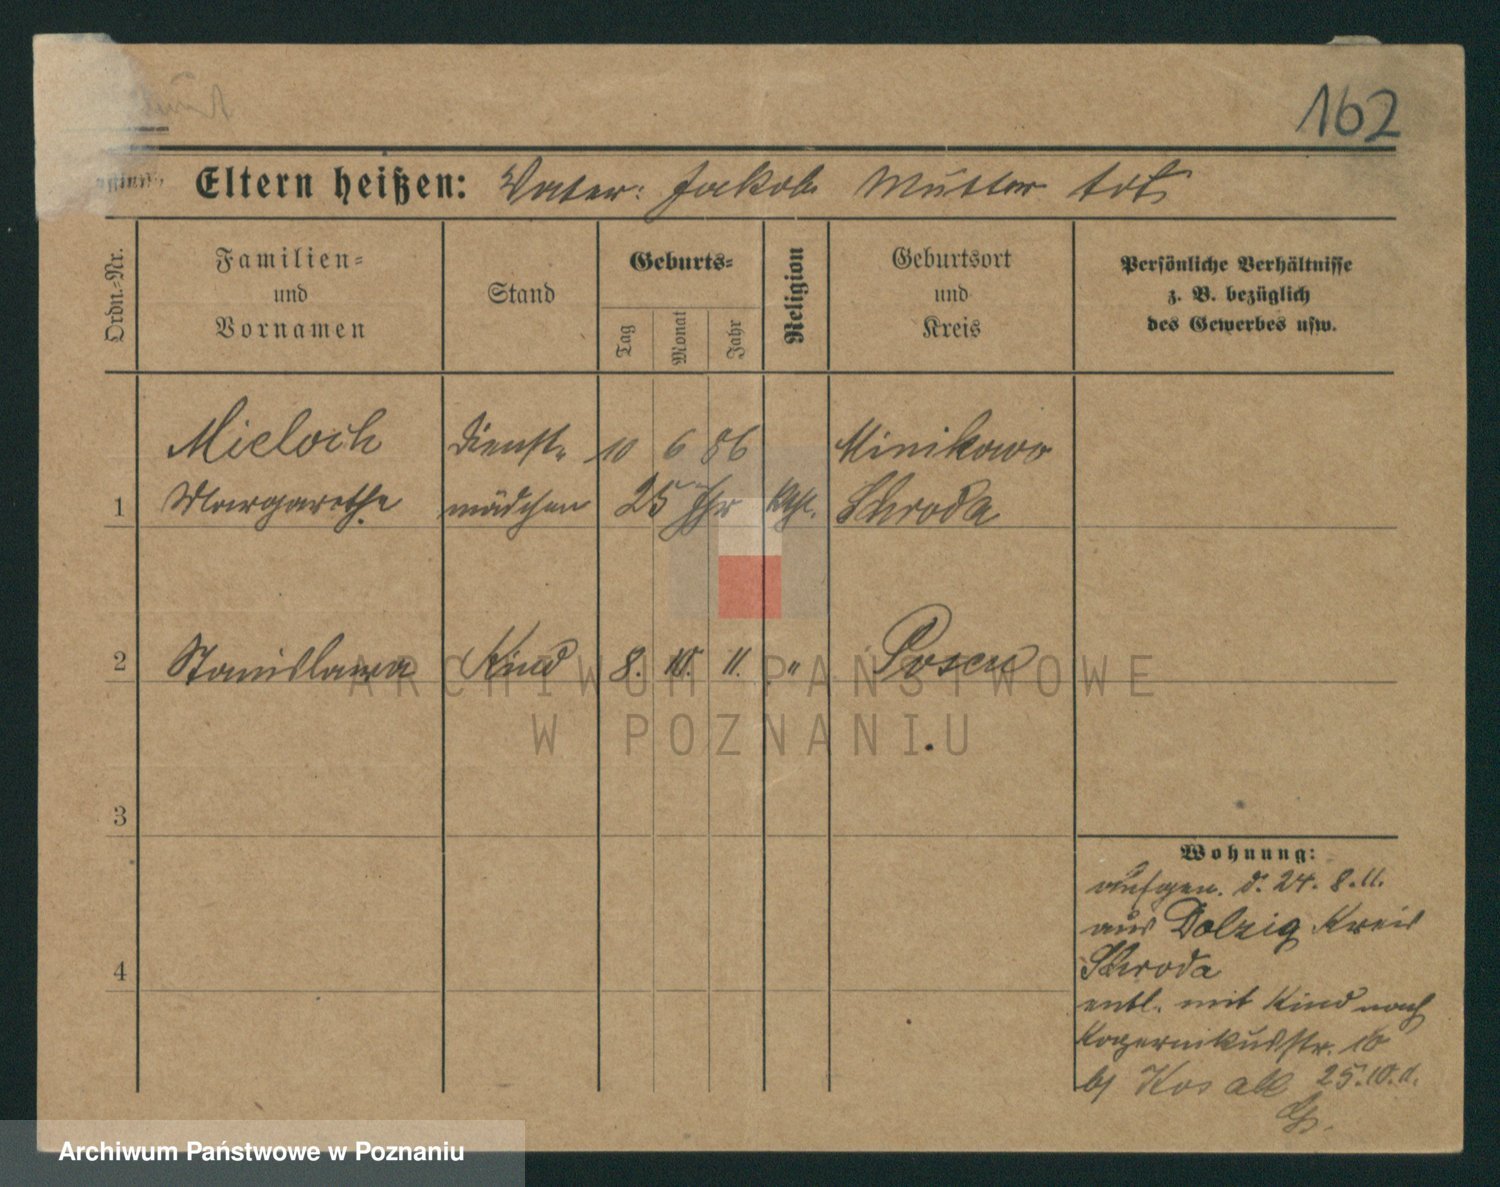 162
Eltern heißen: Vater: Jakob Mutter tot
Ordn.-Nr.
Familien- und Vornamen
Stand
Geburts-
Tag
Monat
Jahr
Religion
Geburtsort und Kreis
Persönliche Verhältnisse
z. B. bezüglich
des Gewerbes usw.
Mieloch Dienst- 10 6 86 Minikowo
1 Margarethe mädchen 25 Jhr Kth. Schroda
2 Stanislawa Kind 8. 10. 11. " Posen
3
Wohnung:
aufgen. d. 24. 8. 11.
aus Dolzig Kreis
4 Schroda
entl. mit Kind nach
Kopernikusstr. 10
bj Kosak 25.10.11.
ARCHIWUM PAŃSTWOWE
W POZNANIU
Archiwum Państwowe w Poznaniu